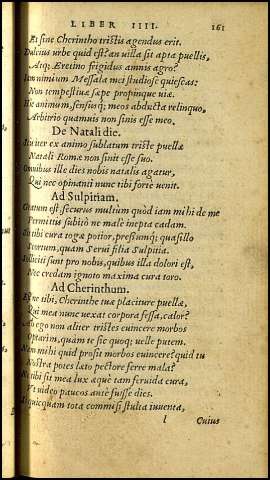 LIBER IIII. 161
Et sine Cherintho tristis agendus erit.
Dulcius urbe quid est? an uilla sit apta puellis,
Atq; Aretino frigidus amnis agro?
Iam nimium Messala mei studiose quiescas:
Non tempestiuæ sæpe propinque uiæ.
Hic animum, sensusq; meos abducta relinquo,
Arbitrio quamuis non sinis esse meo.
De Natali die.
Scis iter ex animo sublatum triste puellæ
Natali Romæ non sinit esse suo.
Omnibus ille dies nobis natalis agatur,
Qui nec opinanti nunc tibi forte uenit.
Ad Sulpitiam.
Gratum est, securus multum quòd iam mihi de me
Permittis subitò ne malè inepta cadam.
Sit tibi cura togæ potior, pressumq; quasillo
Scortum, quàm Serui filia Sulpitia.
Solliciti sunt pro nobis, quibus illa dolori est,
Nec credam ignoto maxima cura toro.
Ad Cherinthum.
Est ne tibi, Cherinthe tuæ placiture puellæ,
Qui mea nunc uexat corpora fessa, calor?
Ah ego non aliter tristes euincere morbos
Optarim, quàm te sic quoq; uelle putem.
Non mihi quid prosit morbos euincere? quid tu
Nostra potes lato pectore ferre mala?
Ne tibi sit mea lux æquè tam feruida cura,
Vt uideo paucos antè fuisse dies.
Si quicquam tota commisi stulta iuuenta,
l Cuius